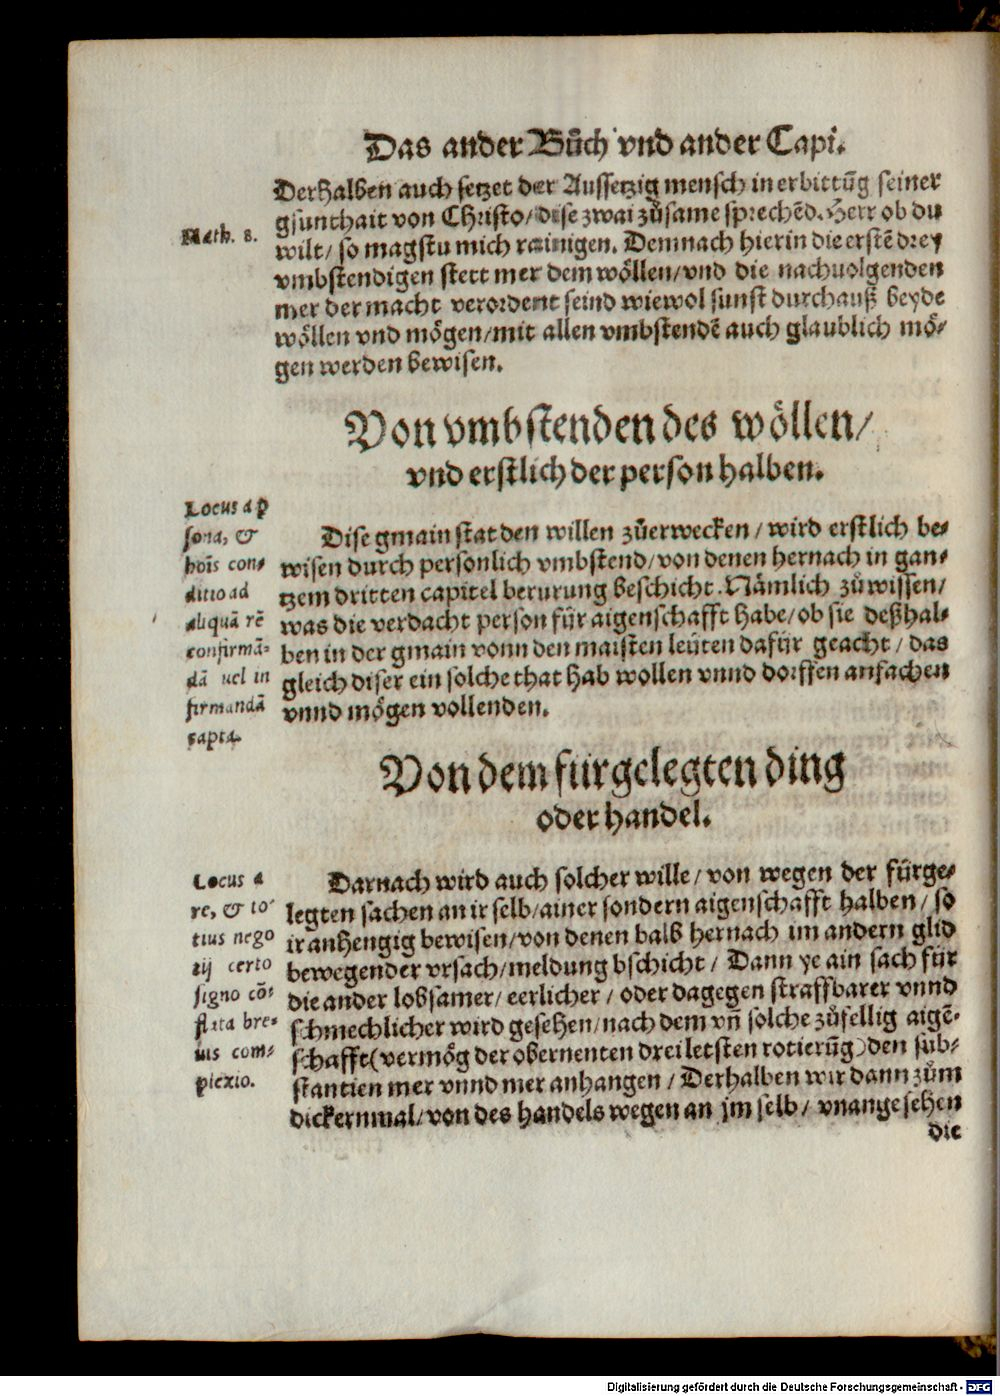 Das ander Bůch vnd ander Capi.
Derhalben auch setzet der Aussetzig mensch in erbittũg seiner
gsunthait von Christo/ dise zwai zůsame sprechẽd. Herr ob du
Math. 8.
wilt/ so magstu mich rainigen. Demnach hierin die erstẽ drey
vmbstendigen stett mer dem wöllen/ vnd die nachuolgenden
mer der macht verordent seind wiewol sunst durchauß beyde
wöllen vnd mögen/ mit allen vmbstendẽ auch glaublich mö-
gen werden bewisen.
Von vmbstenden des wöllen/
vnd erstlich der person halben.
Locus a ꝑ
sona, &
hoĩs con-
ditio ad
aliquã rẽ
confirmã-
dã uel in
firmandã
capta.
Dise gmain stat den willen zůerwecken/ wird erstlich be-
wisen durch personlich vmbstend/ von denen hernach in gan-
tzem dritten capitel berurung beschicht. Nämlich zů wissen/
was die verdacht person für aigenschafft habe/ ob sie deßhal-
ben in der gmain vonn den maisten leüten dafür geacht/ das
gleich diser ein solche that hab wollen vnnd dorffen anfachen
vnnd mögen vollenden.
Von dem fürgelegten ding
oder handel.
Locus a
re, & to-
tius nego
tij certo
signo cõ-
stata bre-
uis com-
plexio.
Darnach wird auch solcher wille/ von wegen der fürge-
legten sachen an ir selb/ ainer sondern aigenschafft halben/ so
ir anhengig bewisen/ von denen bald hernach im andern glid
bewegender vrsach/ meldung bschicht/ Dann ye ain sach für
die ander lobsamer/ eerlicher/ oder dagegen straffbarer vnnd
schmechlicher wird gesehen/ nach dem vñ solche zůfellig aigẽ-
schafft (vermög der obernenten drei letsten rotierũg) den sub-
stantien mer vnnd mer anhangen/ Derhalben wir dann zům
dickernmal/ von des handels wegen an jm selb/ vnangesehen
die
Digitalisierung gefördert durch die Deutsche Forschungsgemeinschaft - DFG